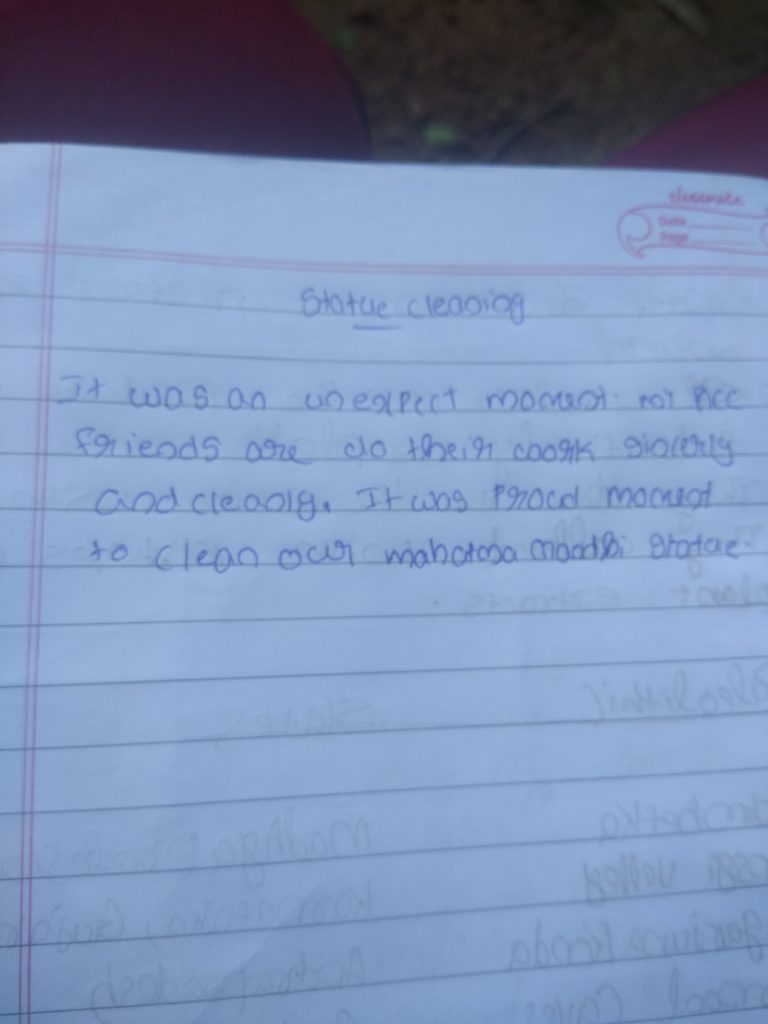 classmate
Date
Page
Statue cleaning
It was an unexpect moment my NCC
friends are do their work sincerly
and cleanly. It was Proud moment
to clean our mahatma Gandhi statue.